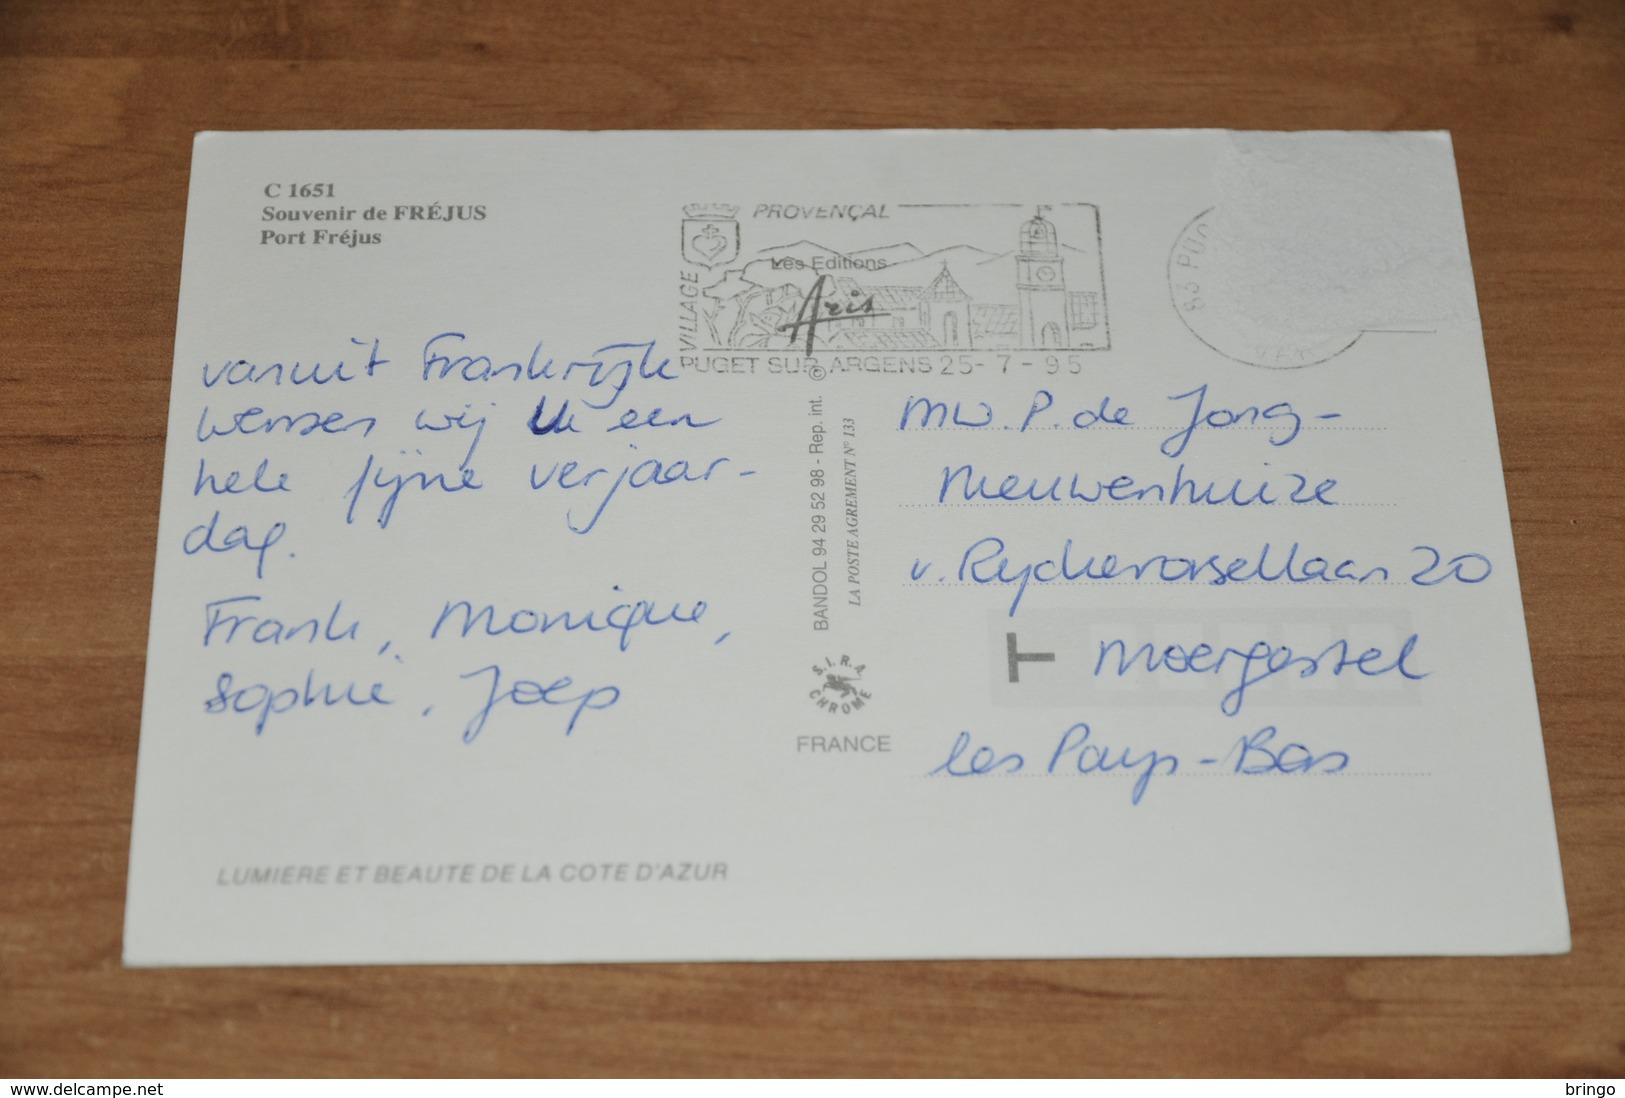 C 1651
Souvenir de FRÉJUS
Port Fréjus
VILLAGE
PROVENÇAL
PUGET SUR ARGENS 25-7-95
83 PU
VAR
Les Editions
Aris
©
BANDOL 94 29 52 98 - Rep. int.
LA POSTE AGREMENT N° 133
S.I.R.A.
CHROME
FRANCE
vanuit Frankrijk
wensen wij U een
hele fijne verjaar-
dag.
Frank, Monique,
Sophie, Joep
mw. P. de Jong-
Nieuwenhuize
v. Ryckevorsellaan 20
T
Moergestel
les Pays-Bas
LUMIERE ET BEAUTE DE LA COTE D'AZUR
www.delcampe.net
bringo